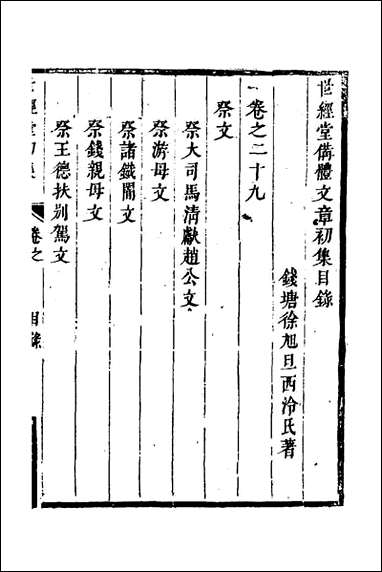 世經堂偹體文章初集目錄
錢塘徐旭旦西泠氏著
卷之二十九
祭文
祭大司馬清獻趙公文
祭游母文
祭諸鐵閣文
祭錢親母文
祭王德扶別駕文
世經堂初集
卷之
目錄